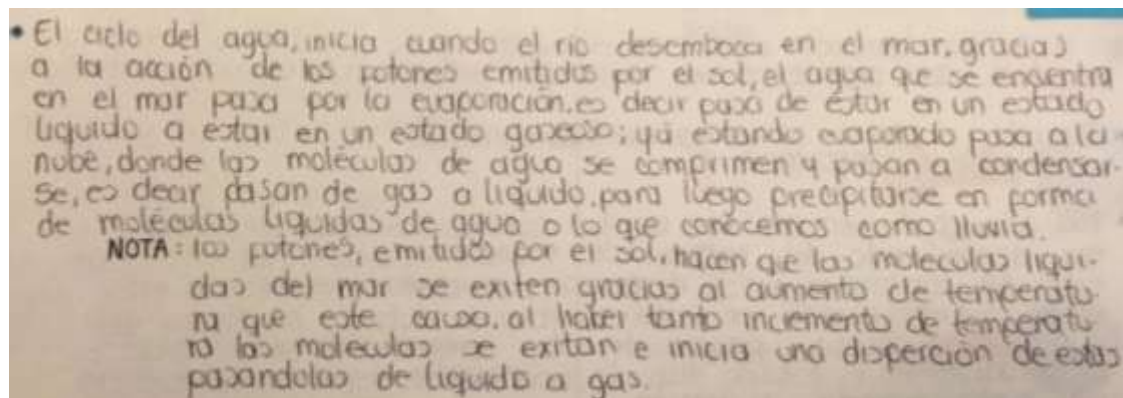 • El ciclo del agua, inicia cuando el rio desemboca en el mar, gracias
a la acción de los fotones emitidos por el sol, el agua que se encuentra
en el mar pasa por la evaporación, es decir pasa de estar en un estado
liquido a estar en un estado gaseoso; ya estando evaporado pasa a la
nube, donde las moléculas de agua se comprimen y pasan a condensar-
se, es decir pasan de gas a liquido, para luego precipitarse en forma
de moléculas liquidas de agua o lo que conócemos como lluvia.
NOTA: los fotones, emitidos por el sol, hacen que las moleculas liqui-
das del mar se exiten gracias al aumento de temperatu-
ra que este causa, al haber tanto incremento de temperatu
ra las moleculas se exitan e inicia una disperción de estas
pasandolas de liquido a gas.